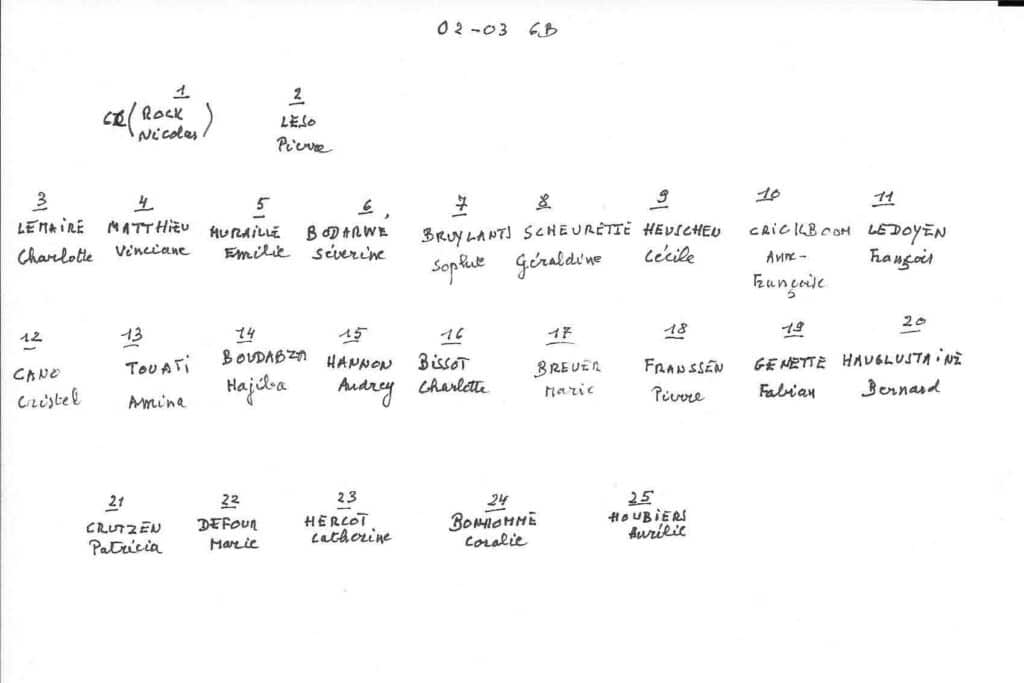 02-03 6B
1 2
(ROCK LESO
Nicolas) Pierre
3 4 5 6 7 8 9 10 11
LEMAIRE MATTHIEU MURAILLE BODARWE BRUYLANTS SCHEURETTE HEUSCHEN CRICKBOOM LEDOYEN
Charlotte Vinciane Emilie Séverine Sophie Géraldine Cécile Anne- François
Françoise
12 13 14 15 16 17 18 19 20
CANO TOUATI BOUDABZA HANNON BISSOT BREUER FRANSSEN GENETTE HAUGLUSTAINE
Cristel Amina Hajiba Audrey Charlotte Marie Pierre Fabian Bernard
21 22 23 24 25
CRUTZEN DEFOUR HERCOT BONHOMME HOUBIERS
Patricia Marie Catherine Coralie Aurélie